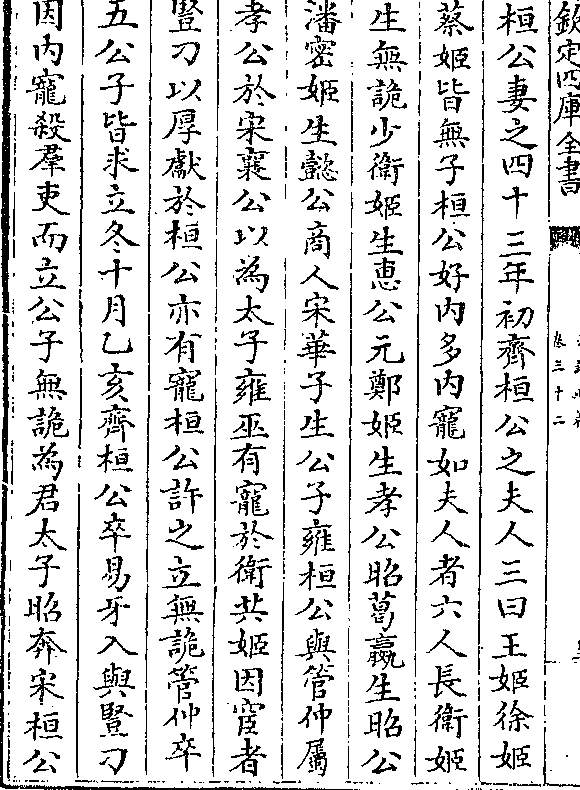 欽定四庫全書
卷三十二
桓公妻之四十三年初齊桓公之夫人三曰王姬徐姬
蔡姬皆無子桓公好内多内寵如夫人者六人長衛姬
生無詭少衛姬生惠公元鄭姬生孝公昭葛嬴生昭公
潘密姬生懿公商人宋華子生公子雍桓公與管仲屬
孝公於宋襄公以為太子雍巫有寵於衛共姬因宦者
豎刁以厚獻於桓公亦有寵桓公許之立無詭管仲卒
五公子皆求立冬十月乙亥齊桓公卒易牙入與豎刁
因内寵殺羣吏而立公子無詭為君太子昭奔宋桓公